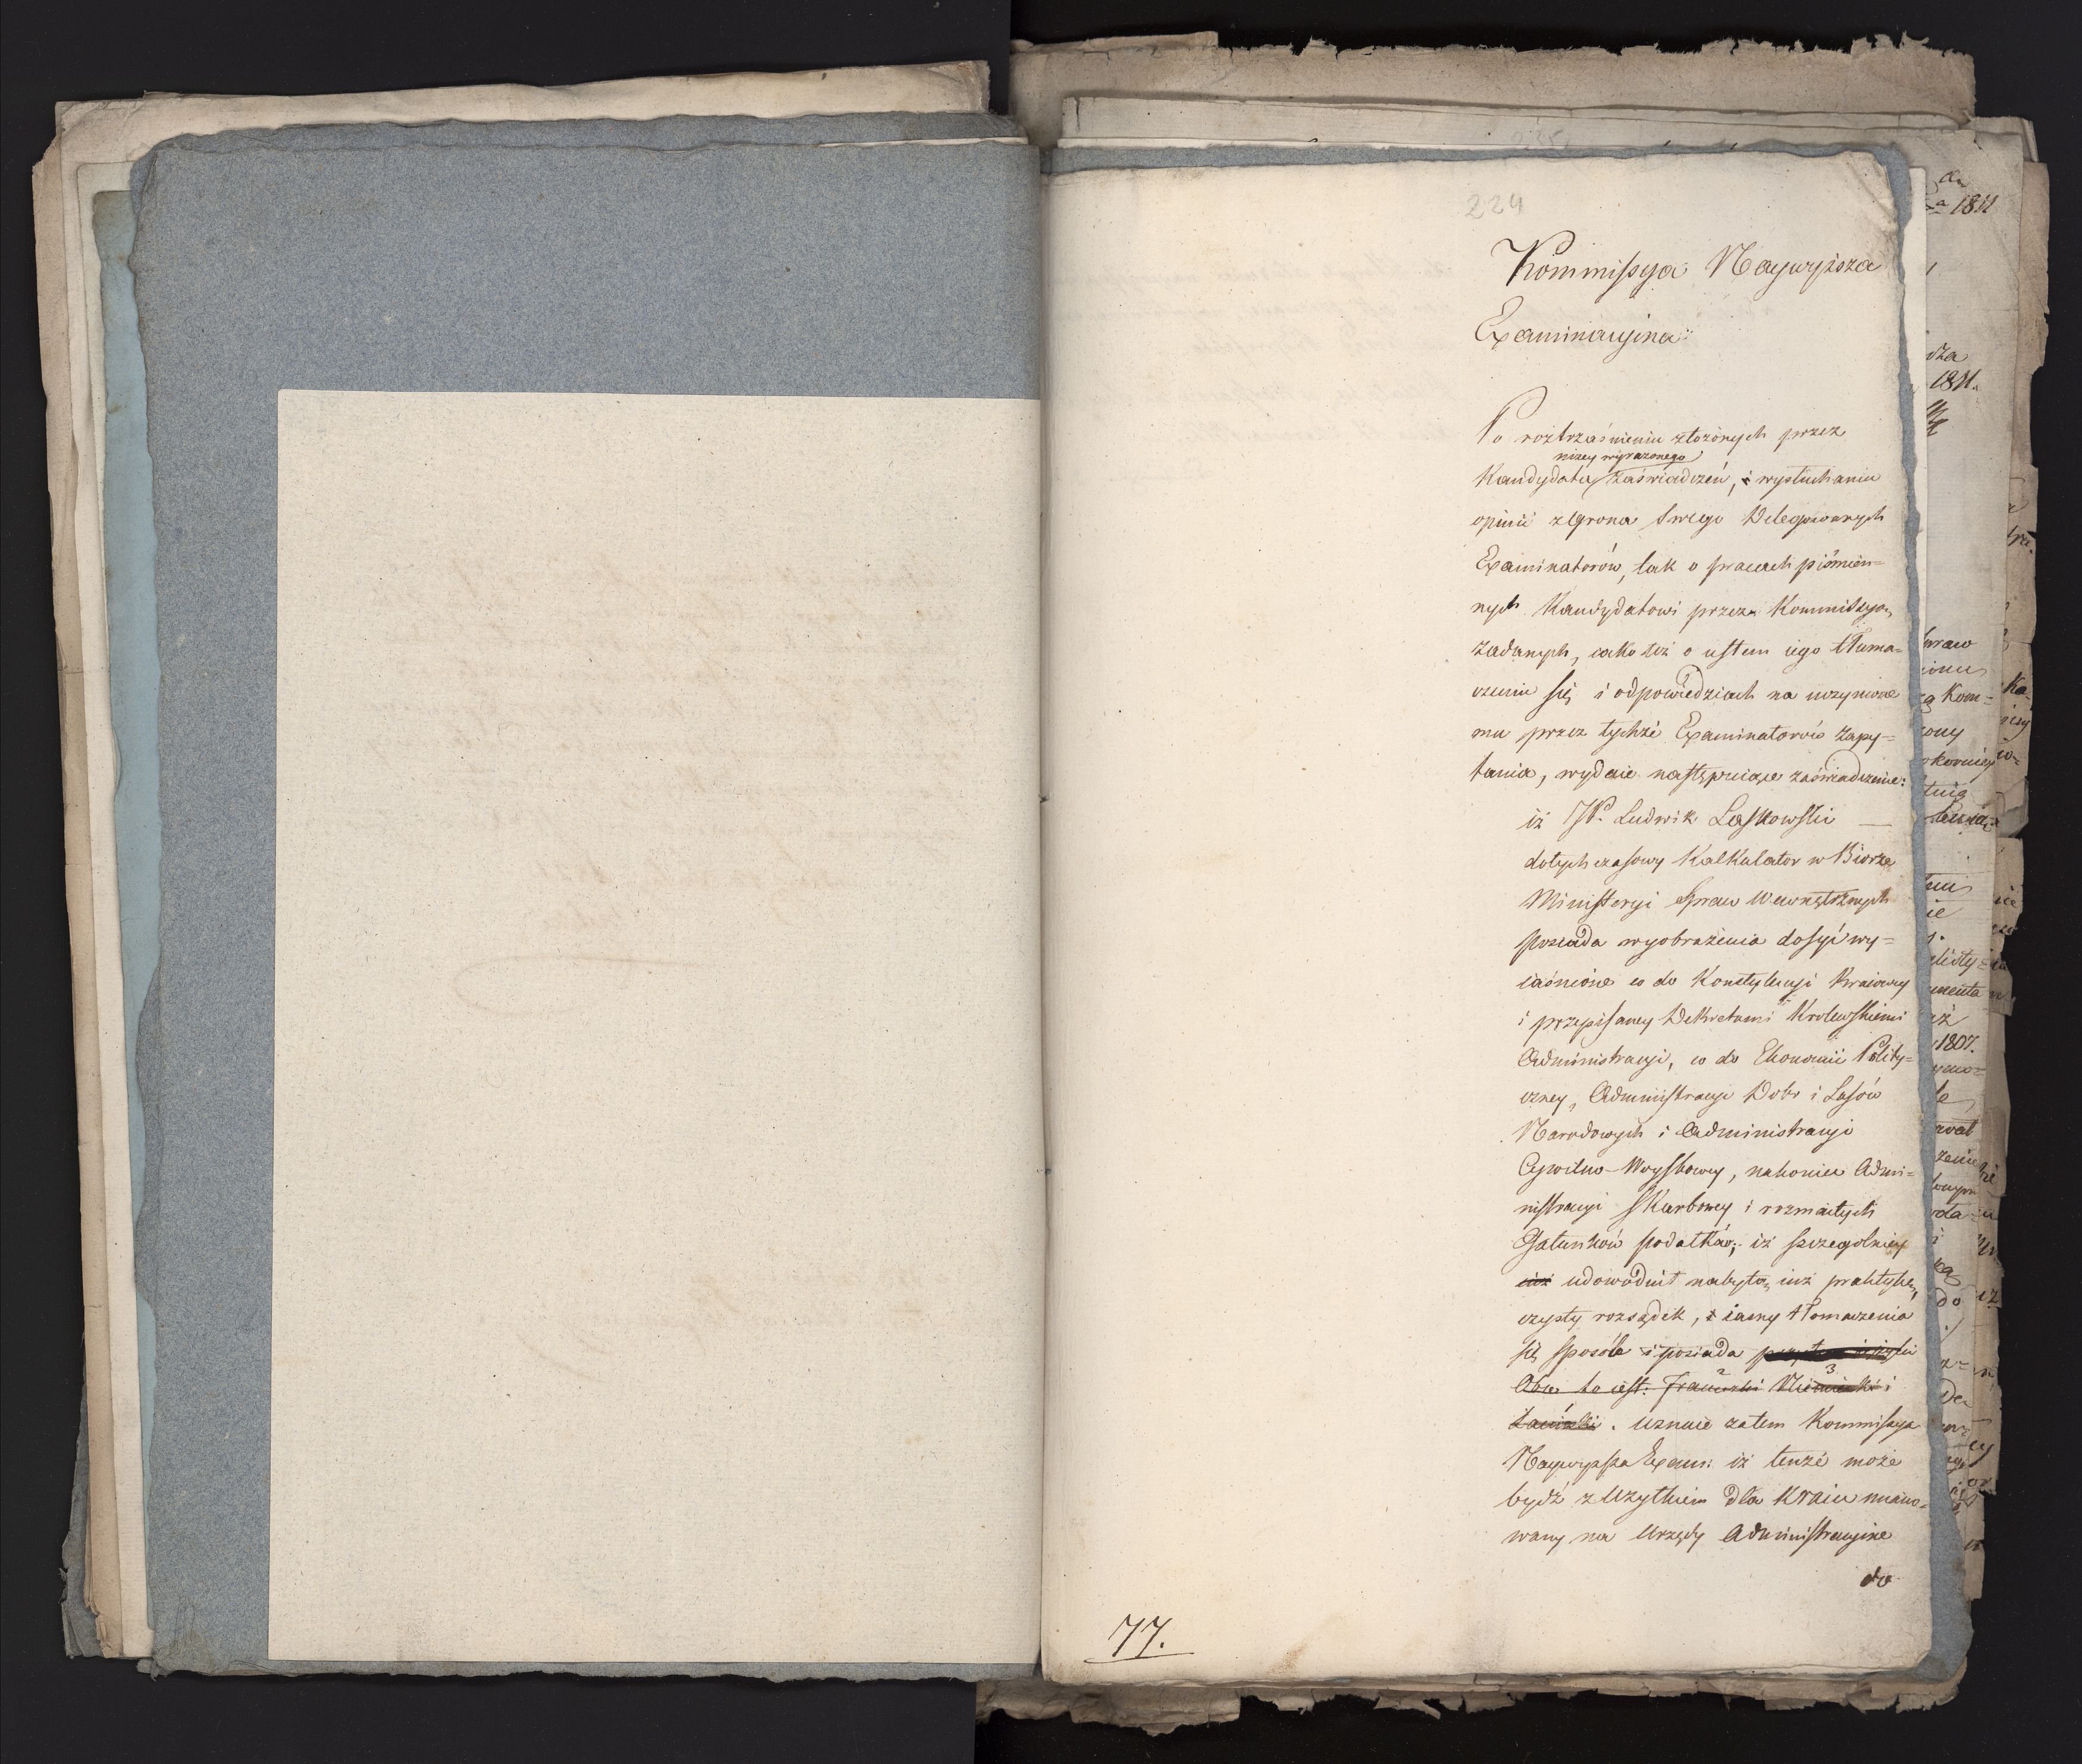 224
Kommissya Naywyższa
Examinacyina:
Po roztrząśnieniu złożonych przez
niżey wyrażonego
Kandydata zaświadczeń, i wysłuchaniu
opinii z grona swego Delegowanych
Examinatorów, tak o pracach piśmien=
nych Kandydatowi przez Kommissyą
zadanych, iako też o ustem iego tłuma=
czeniu się i odpowiedziach na uczynione
mu przez tychże Examinatorów zapy=
tania, wydaie następuiące zaświadczenie:
iż JP. Ludwik Laskowski —
dotychczasowy Kalkulator w Biórze
Ministeryi Spraw Wewnętrznych
posiada wyobrażenia dosyć wy=
iaśnione co do Konstytucyi Kraiowey
i przepisaney Dekretami Krolewskiemi
Administracyi, co do Ekonomii Polity=
czney, Administracyi Dobr i Lasów
Narodowych i Administracyi
Cywilno-Woyskowey, nakoniec Admi=
nistracyi Skarbowey i rozmaitych
Gatunków podatków; iż szczegolniey
iuż udowodnił nabytą iuż praktykę,
czysty rozsądek, i iasny tłomaczenia
się sposób i posiada
2 3
to iest: Francuzki Niemiecki i
1
Łaciński. Uznaie zatem Kommissya
Naywyższa Exam: iż tenże może
bydź z użytkiem dla Kraiu miano=
wany na Urzędy Administracyine
do
77.
an
1811
dza
1811.
praw
Kom=
1807.